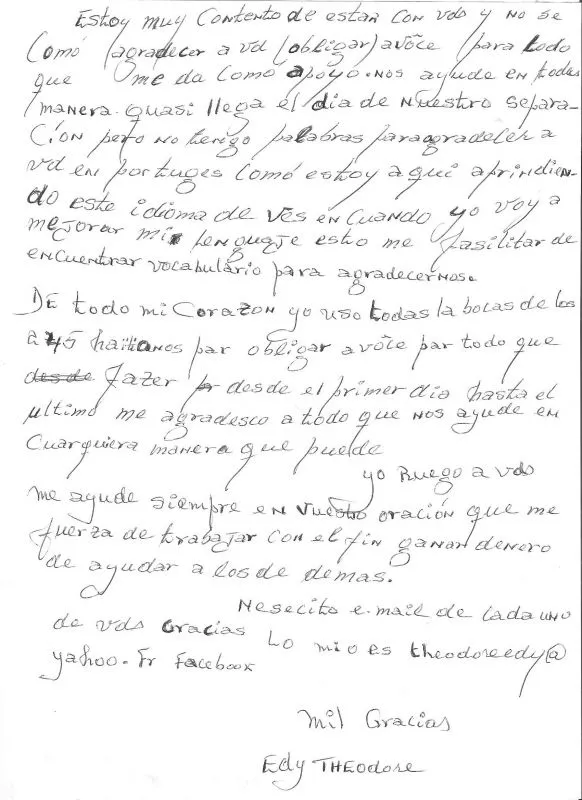 Estoy muy contento de estar con vds y no se
como (agradecer a vd (obligar) a vôce (para todo
que me da como apoyo. nos ayude en todas
manera. quasi llega el dia de nuestro separa-
cion pero no tenigo palabras para agradecer a
vd en portuges como estoy aqui aprindien-
do este idioma de ves en cuando yo voy a
mejorar mi lenguaje esto me fasilitar de
encuentrar vocabulário para agradecernos.
De todo mi corazon yo uso todas la bocas de los
45 haitianos par obligar a vôce par todo que
desde fazer desde el primer dia hasta el
ultimo me agradesco a todo que nos ayude en
cuarquiera manera que puede
yo Ruego a vds
me ayude siempre en vuestro oración que me
fuerza de trabajar con el fin ganar denero
de ayudar a los de demas.
Nesecito e.mail de cada uno
de vds Gracias Lo mio es theodoreedy@
yahoo.fr Facebook
Mil Gracias
Edy THEODORE